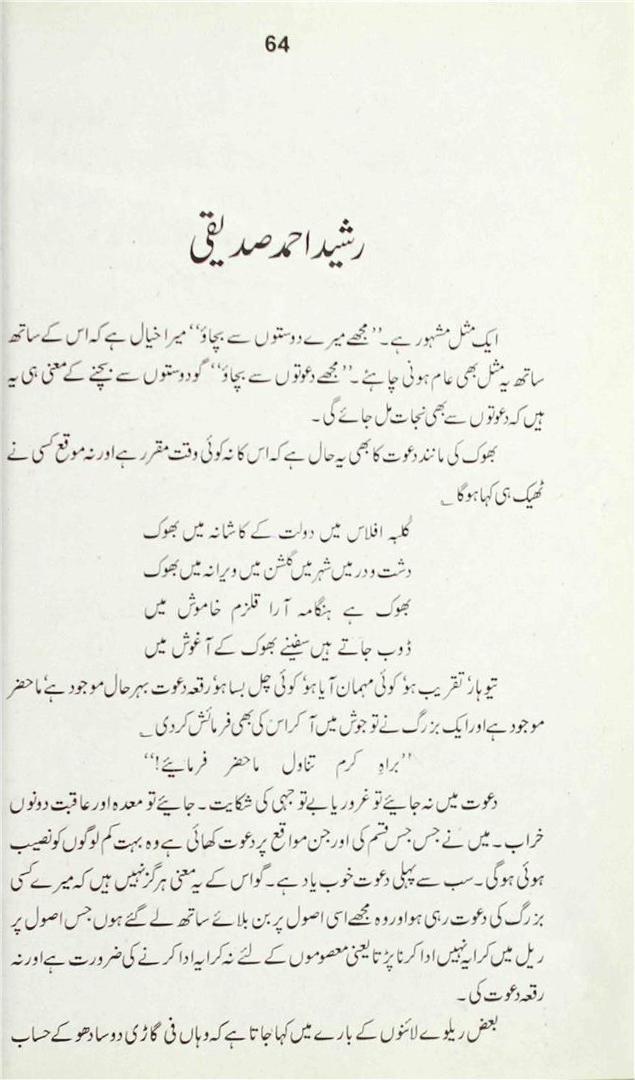 64
رشید احمد صدیقی
ایک مثل مشہور ہے۔ ”مجھے میرے دوستوں سے بچاؤ“ میرا خیال ہے کہ اس کے ساتھ
ساتھ یہ مثل بھی عام ہونی چاہئے۔ ”مجھے دعوتوں سے بچاؤ“ گو دوستوں سے بچنے کے معنی ہی یہ
ہیں کہ دعوتوں سے بھی نجات مل جائے گی۔
بھوک کی مانند دعوت کا بھی یہ حال ہے کہ اس کا نہ کوئی وقت مقرر ہے اور نہ موقع کسی نے
ٹھیک ہی کہا ہوگا ؎
کلبہ افلاس میں دولت کے کاشانہ میں بھوک
دشت و در میں شہر میں گلشن میں ویرانہ میں بھوک
بھوک ہے ہنگامہ آرا قلزم خاموش میں
ڈوب جاتے ہیں سفینے بھوک کے آغوش میں
تیوہار‘ تقریب ہو‘ کوئی مہمان آیا ہو‘ کوئی چل بسا ہو‘ رقعہ دعوت بہرحال موجود ہے‘ ماحضر
موجود ہے اور ایک بزرگ نے تو جوش میں آ کر اس کی بھی فرمائش کر دی ؎
”براہِ کرم تناول ماحضر فرمایئے!“
دعوت میں نہ جایئے تو غرور یا بے توجہی کی شکایت۔ جایئے تو معدہ اور عاقبت دونوں
خراب۔ میں نے جس جس قسم کی اور جن مواقع پر دعوت کھائی ہے وہ بہت کم لوگوں کو نصیب
ہوئی ہوگی۔ سب سے پہلی دعوت خوب یاد ہے۔ گو اس کے یہ معنی ہرگز نہیں ہیں کہ میرے کسی
بزرگ کی دعوت رہی ہو اور وہ مجھے اسی اصول پر بن بلائے ساتھ لے گئے ہوں جس اصول پر
ریل میں کرایہ نہیں ادا کرنا پڑتا یعنی معصوموں کے لئے نہ کرایہ ادا کرنے کی ضرورت ہے اور نہ
رقعہ دعوت کی۔
بعض ریلوے لائنوں کے بارے میں کہا جاتا ہے کہ وہاں فی گاڑی دو سادھو کے حساب